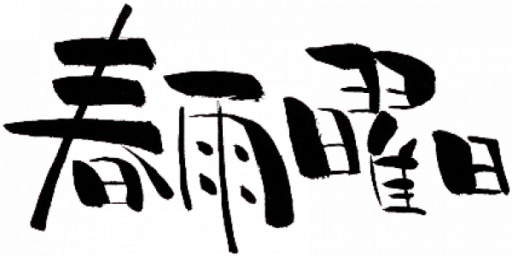 春雨曜日